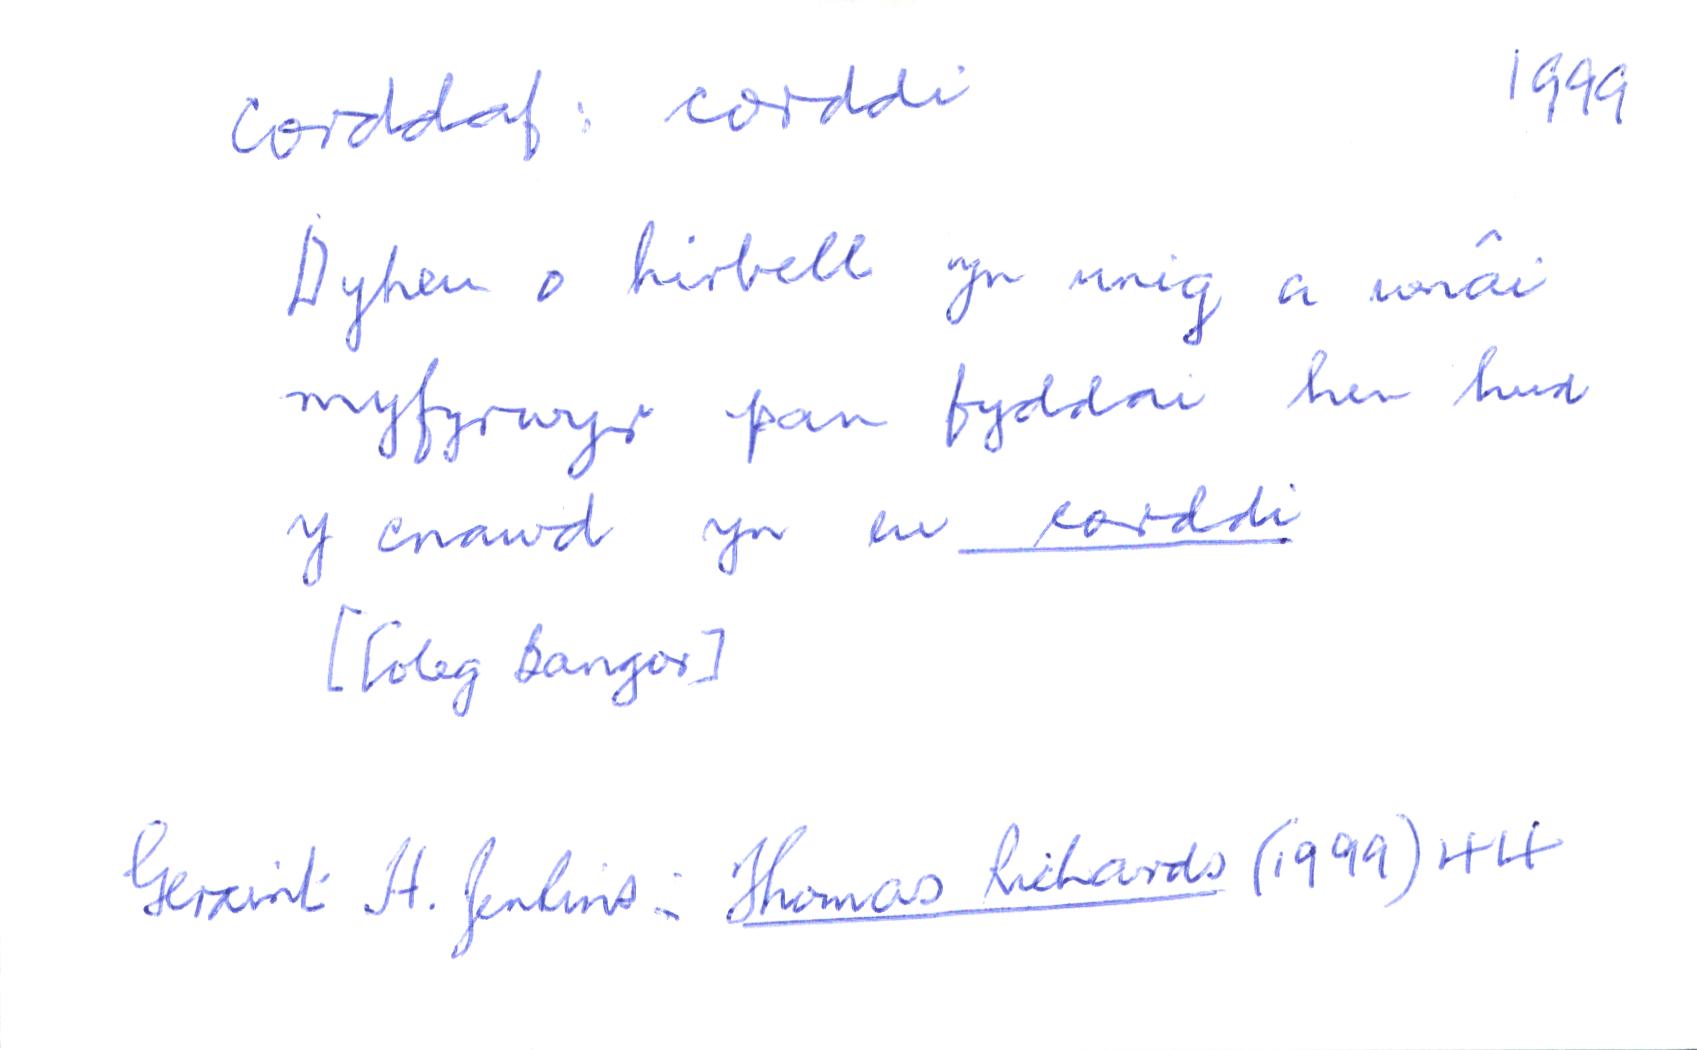 corddaf: corddi 1999
Dyheu o hirbell yn unig a wnâi
myfyrwyr pan fyddai hen hud
y cnawd yn eu corddi
[Coleg Bangor]
Geraint H. Jenkins: Thomas Richards (1999) 44